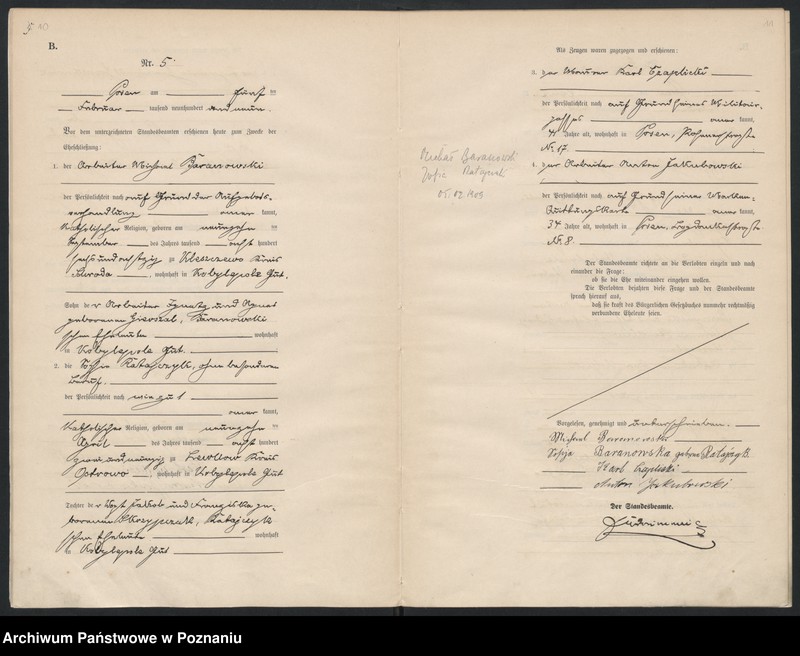 B.
Nr. 5
Posen am fünf ten
Februar tausend neunhundert und neun.
Vor dem unterzeichneten Standesbeamten erschienen heute zum Zwecke der
Eheschließung:
1. der Arbeiter Michael Baranowski
der Persönlichkeit nach auf Grund der Aufgebots-
verhandlung kannt,
katholischer Religion, geboren am neunzehn ten
September des Jahres tausend acht hundert
sechsundachtzig zu Kleszczewo Kreis
Schroda, wohnhaft in Kobylepole Gut.
Sohn der Arbeiter Ignatz und Agnes
geborenen Baranowski
schen Eheleute wohnhaft
in Kobylepole Gut.
2. die Sofia Ratajczyk, ohne besonderen
Beruf.
der Persönlichkeit nach wie zu 1
kannt,
katholischer Religion, geboren am neunzehn ten
April des Jahres tausend acht hundert
zu Kreis
Ostrowo, wohnhaft in Kobylepole Gut
Tochter der Vogt Jakob und Franziska ge-
borenen Skrzypczak, Ratajczyk
schen Eheleute wohnhaft
in Kobylepole Gut
11
Als Zeugen waren zugezogen und erschienen:
3. der Maurer Karl Czaplicki
der Persönlichkeit nach auf Grund seines Militair-
passes kannt,
Jahre alt, wohnhaft in Posen, Posenerstraße
№ 17.
4. der Arbeiter Anton Jakubowski
der Persönlichkeit nach auf Grund seiner Marken-
Quittungskarte kannt,
34 Jahre alt, wohnhaft in Posen, Bogdankastraße
№ 8.
Der Standesbeamte richtete an die Verlobten einzeln und nach
einander die Frage:
ob sie die Ehe miteinander eingehen wollen.
Die Verlobten bejahten diese Frage und der Standesbeamte
sprach hierauf aus,
daß sie kraft des Bürgerlichen Gesetzbuchs nunmehr rechtmäßig
verbundene Eheleute seien.
Vorgelesen, genehmigt und unterschrieben.
Michael Baranowski
Zofija Baranowska geborne Ratajczyk
Karl Czaplicki
Anton Jakubowski
Der Standesbeamte.
Michał Baranowski
Zofia Ratajczak
05.02.1909
Archiwum Państwowe w Poznaniu